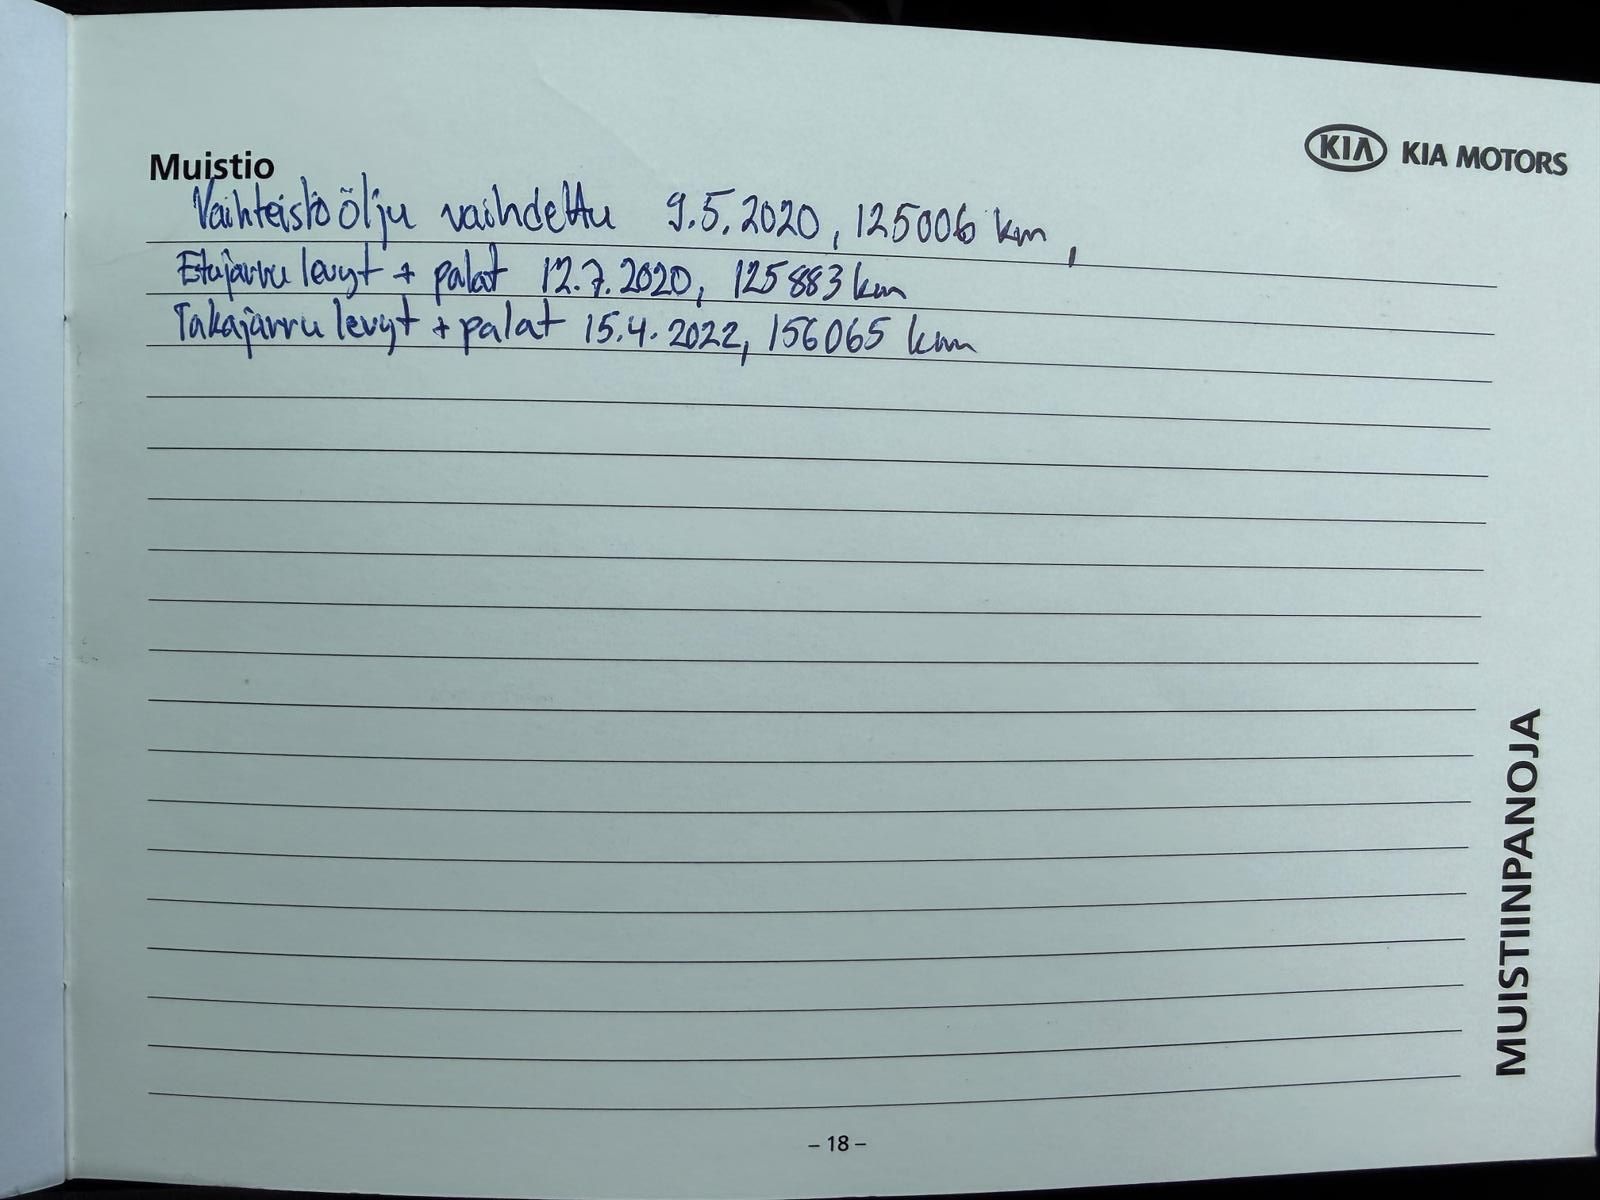 KIA KIA MOTORS
Muistio
Vaihteistoöljy vaihdettu 9.5.2020, 125006 km,
Etujarru levyt + palat 12.7.2020, 125883 km
Takajarru levyt + palat 15.4.2022, 156065 km
MUISTIINPANOJA
– 18 –